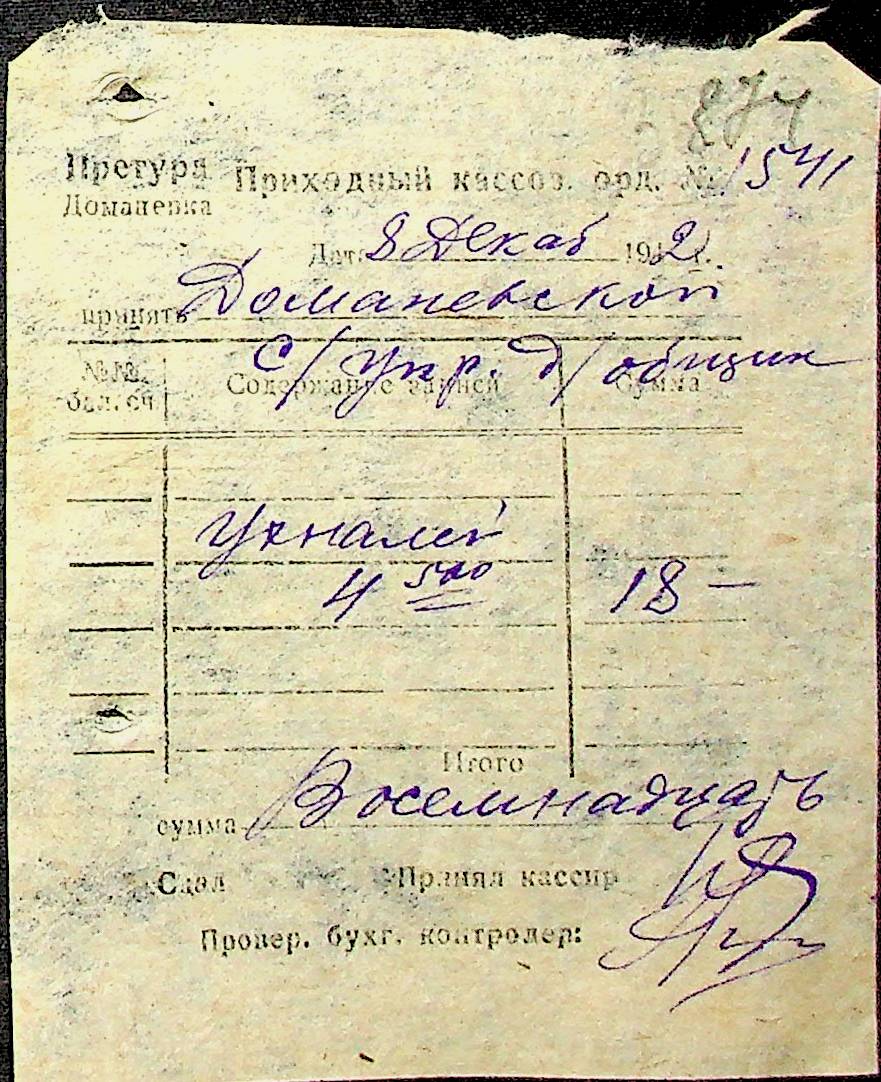 874
Претура Приходный кассов. орд. № 1541
Доманевка
Дата 8 Декаб 1942 г.
принять Доманевской
с/упр. д/общин
№№ Содержание записей Сумма
бал. сч
Ухналей
4 500 18 —
Итого
сумма Восемнадцать
Сдал Принял кассир
Провер. бухг. контролер: